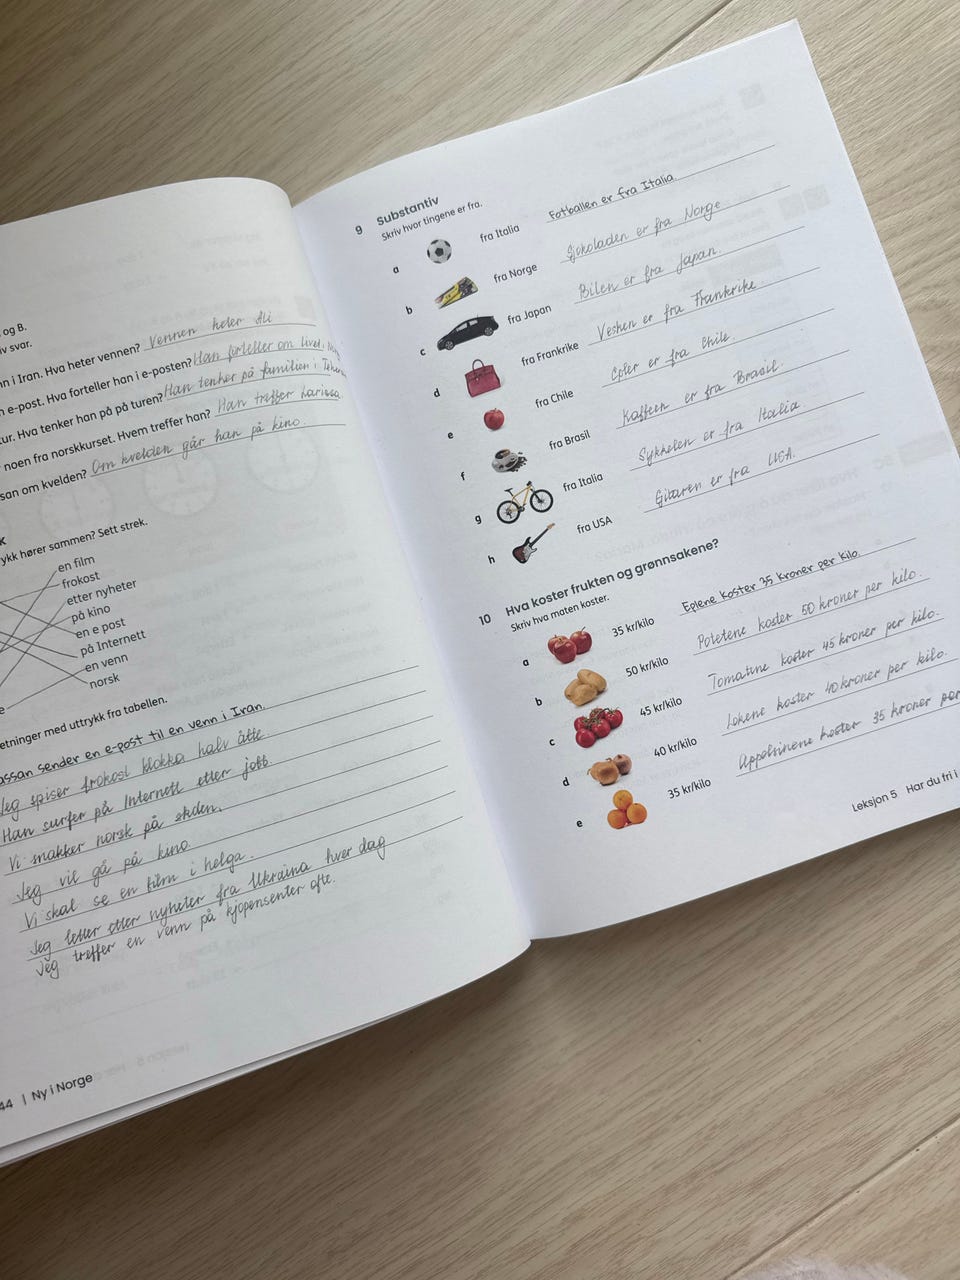 og B.
iv svar.
nn i Iran. Hva heter vennen? Vennen heter Ali
n e-post. Hva forteller han i e-posten? Han forteller om livet i
tur. Hva tenker han på på turen? Han tenker på familien i
noen fra norskkurset. Hvem treffer han? Han treffer Larissa
san om kvelden? Om kvelden går han på kino.
K
ykk hører sammen? Sett strek.
en film
frokost
etter nyheter
på kino
en e post
på Internett
en venn
norsk
e
etninger med uttrykk fra tabellen.
assan sender en e-post til en venn i Iran.
Jeg spiser frokost klokka halv åtte.
Han surfer på Internett etter jobb.
Vi snakker norsk på skolen.
Jeg vil gå på kino.
Vi skal se en film i helga.
Jeg letter etter nyheter fra Ukraina hver dag
Jeg treffer en venn på kjøpensenter ofte.
44 | Ny i Norge
9 Substantiv
Skriv hvor tingene er fra.
a fra Italia Fotballen er fra Italia.
b fra Norge Sjokoladen er fra Norge.
c fra Japan Bilen er fra Japan.
d fra Frankrike Vesken er fra Frankrike.
e fra Chile er fra Chile.
f fra Brasil Kaffeen er fra Brasil.
g fra Italia Sykkelen er fra Italia
h fra USA Gitaren er fra USA.
10 Hva koster frukten og grønnsakene?
Skriv hva maten koster.
a 35 kr/kilo Eplene koster 35 kroner per kilo.
b 50 kr/kilo Potetene koster 50 kroner per kilo.
c 45 kr/kilo Tomatene koster 45 kroner per kilo.
d 40 kr/kilo Løkene koster 40 kroner per kilo.
e 35 kr/kilo Appelsinene koster 35 kroner per
Leksjon 5 Har du fri i